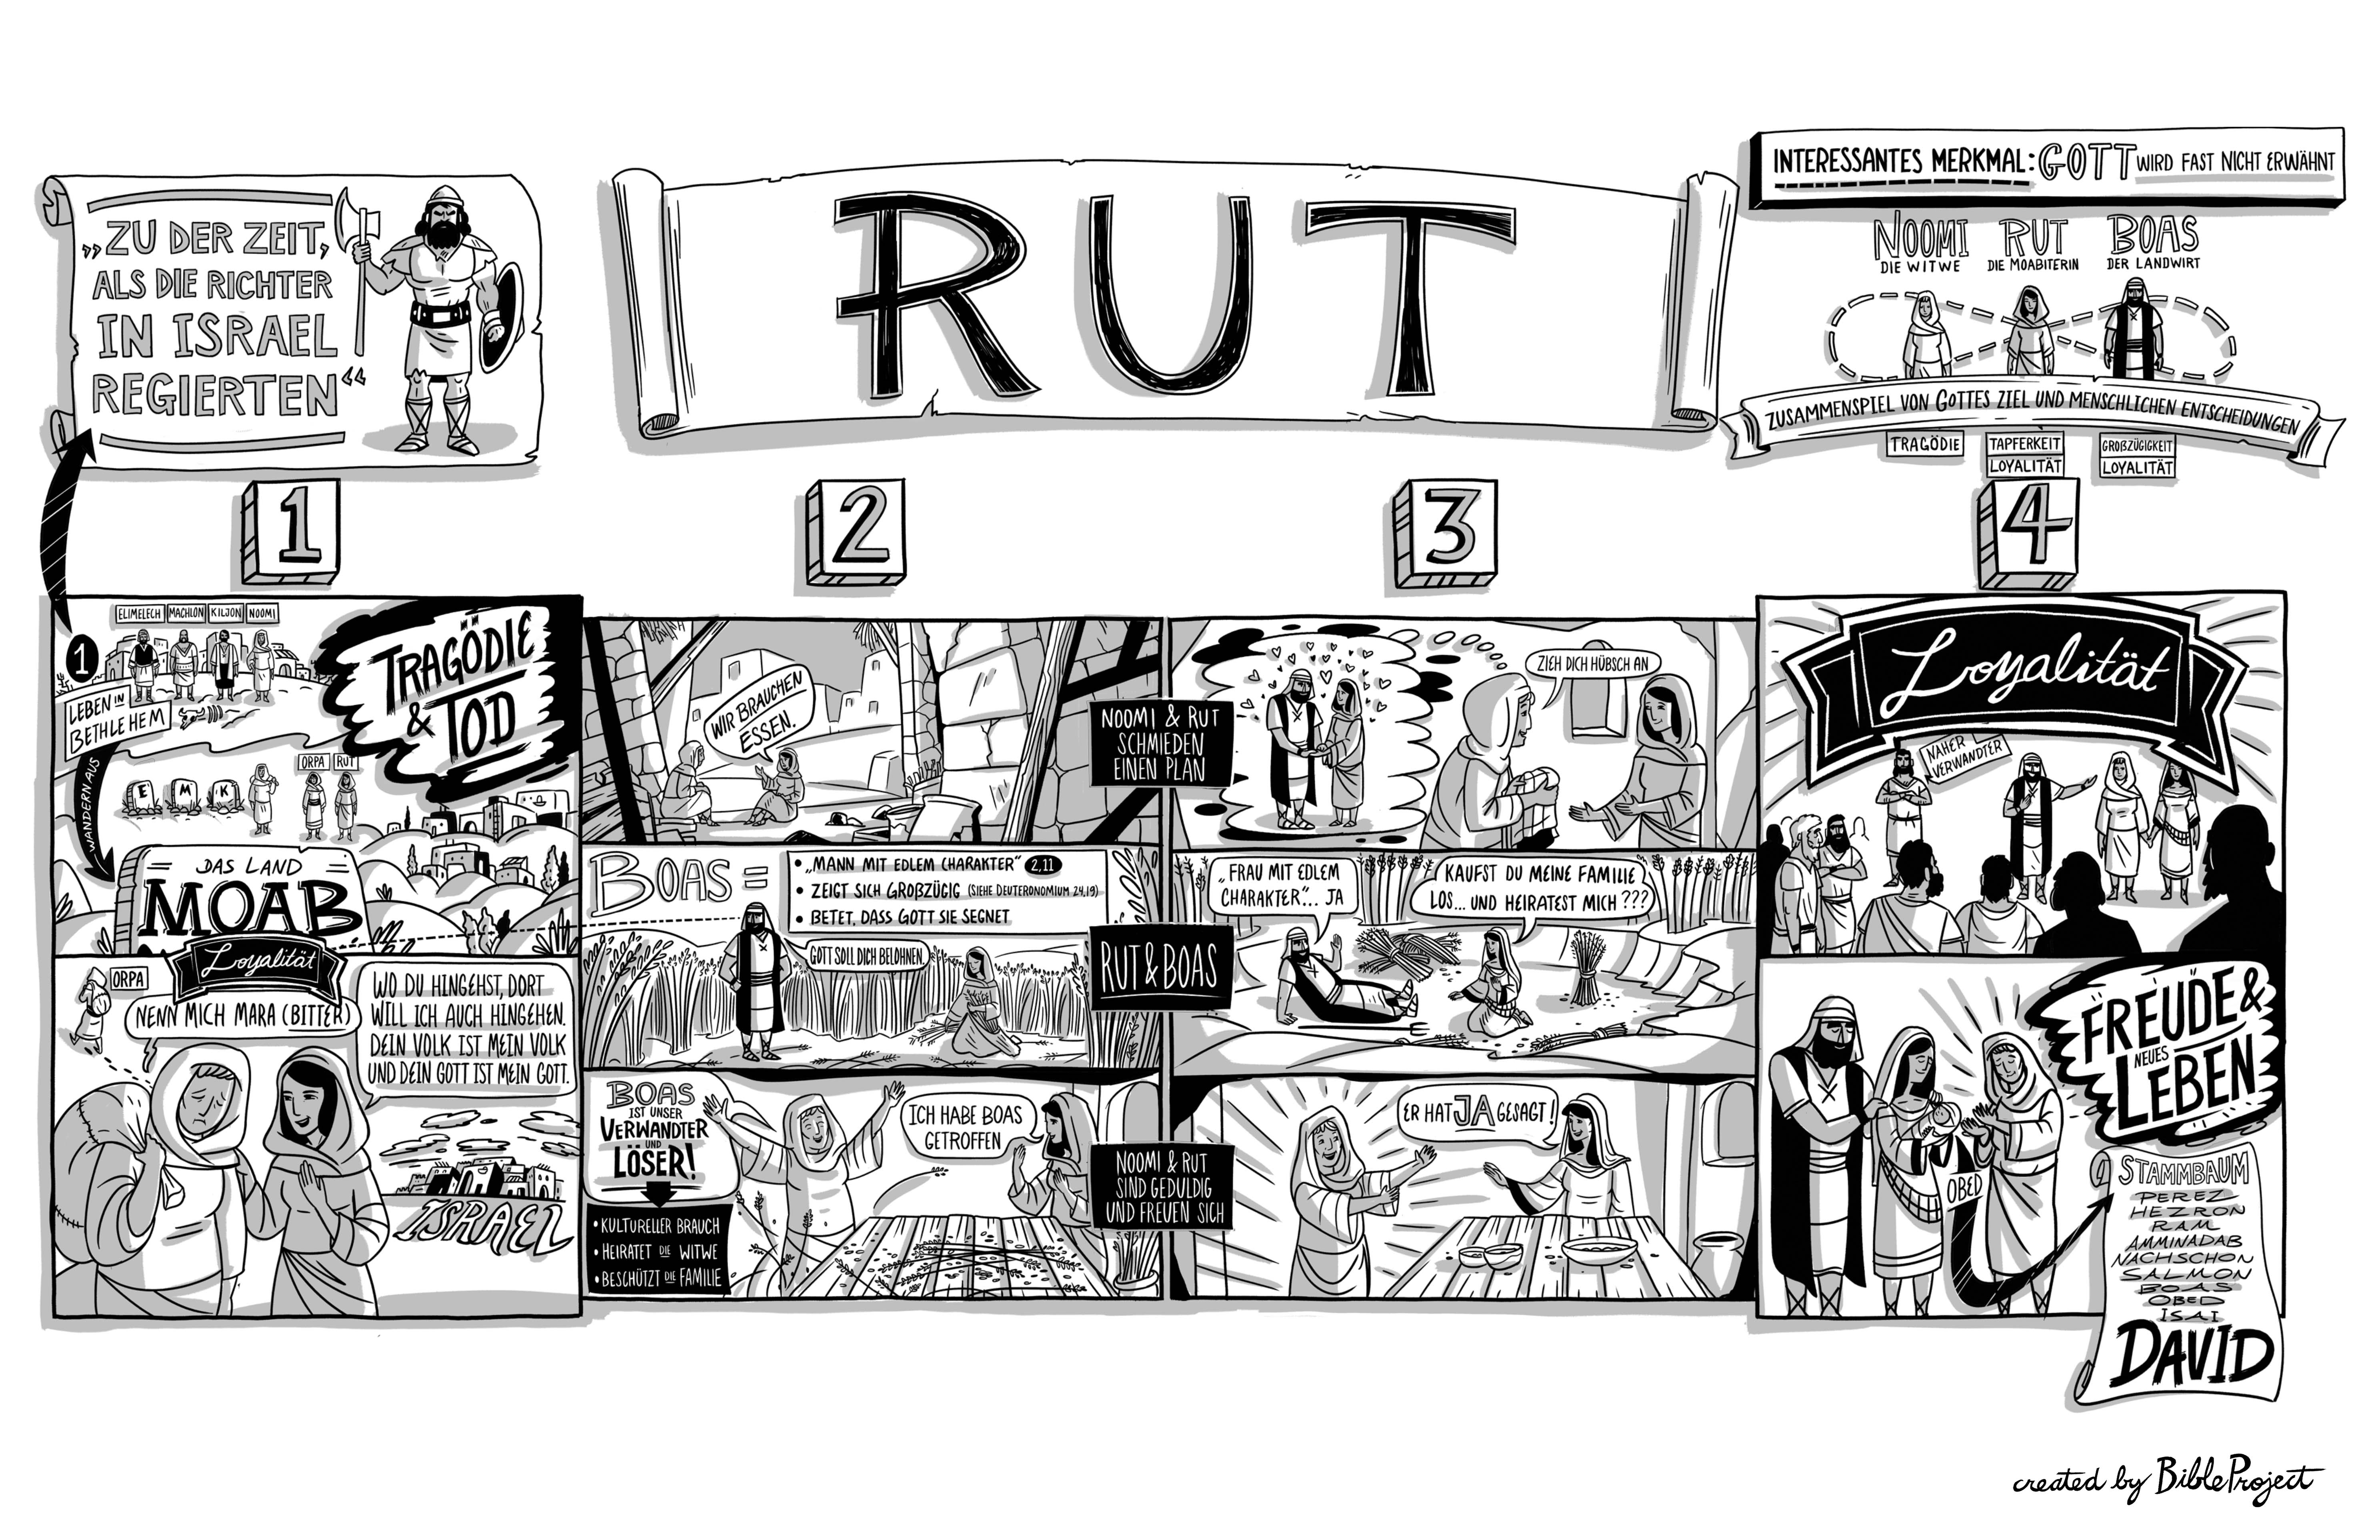 „ZU DER ZEIT,
ALS DIE RICHTER
IN ISRAEL
REGIERTEN“
RUT
INTERESSANTES MERKMAL: GOTT WIRD FAST NICHT ERWÄHNT
NOOMI
DIE WITWE
RUT
DIE MOABITERIN
BOAS
DER LANDWIRT
ZUSAMMENSPIEL VON GOTTES ZIEL UND MENSCHLICHEN ENTSCHEIDUNGEN
TRAGÖDIE
TAPFERKEIT
LOYALITÄT
GROßZÜGIGKEIT
LOYALITÄT
1
ELIMELECH
MACHLON
KILJON
NOOMI
1
LEBEN IN
BETHLEHEM
TRAGÖDIE
& TOD
WANDERN AUS
E
M
K
ORPA
RUT
DAS LAND
MOAB
Loyalität
ORPA
NENN MICH MARA (BITTER)
WO DU HINGEHST, DORT
WILL ICH AUCH HINGEHEN.
DEIN VOLK IST MEIN VOLK
UND DEIN GOTT IST MEIN GOTT.
ISRAEL
2
WIR BRAUCHEN
ESSEN.
BOAS =
• „MANN MIT EDLEM CHARAKTER“ 2,11
• ZEIGT SICH GROßZÜGIG (SIEHE DEUTERONOMIUM 24,19)
• BETET, DASS GOTT SIE SEGNET
GOTT SOLL DICH BELOHNEN.
BOAS
IST UNSER
VERWANDTER
UND
LÖSER!
• KULTURELLER BRAUCH
• HEIRATET DIE WITWE
• BESCHÜTZT DIE FAMILIE
ICH HABE BOAS
GETROFFEN
NOOMI & RUT
SCHMIEDEN
EINEN PLAN
RUT & BOAS
NOOMI & RUT
SIND GEDULDIG
UND FREUEN SICH
3
ZIEH DICH HÜBSCH AN
„FRAU MIT EDLEM
CHARAKTER“... JA
KAUFST DU MEINE FAMILIE
LOS... UND HEIRATEST MICH ???
ER HAT JA GESAGT!
4
Loyalität
NAHER
VERWANDTER
FREUDE &
NEUES
LEBEN
OBED
STAMMBAUM
PEREZ
HEZRON
RAM
AMMINADAB
NACHSCHON
SALMON
BOAS
OBED
ISAI
DAVID
created by BibleProject